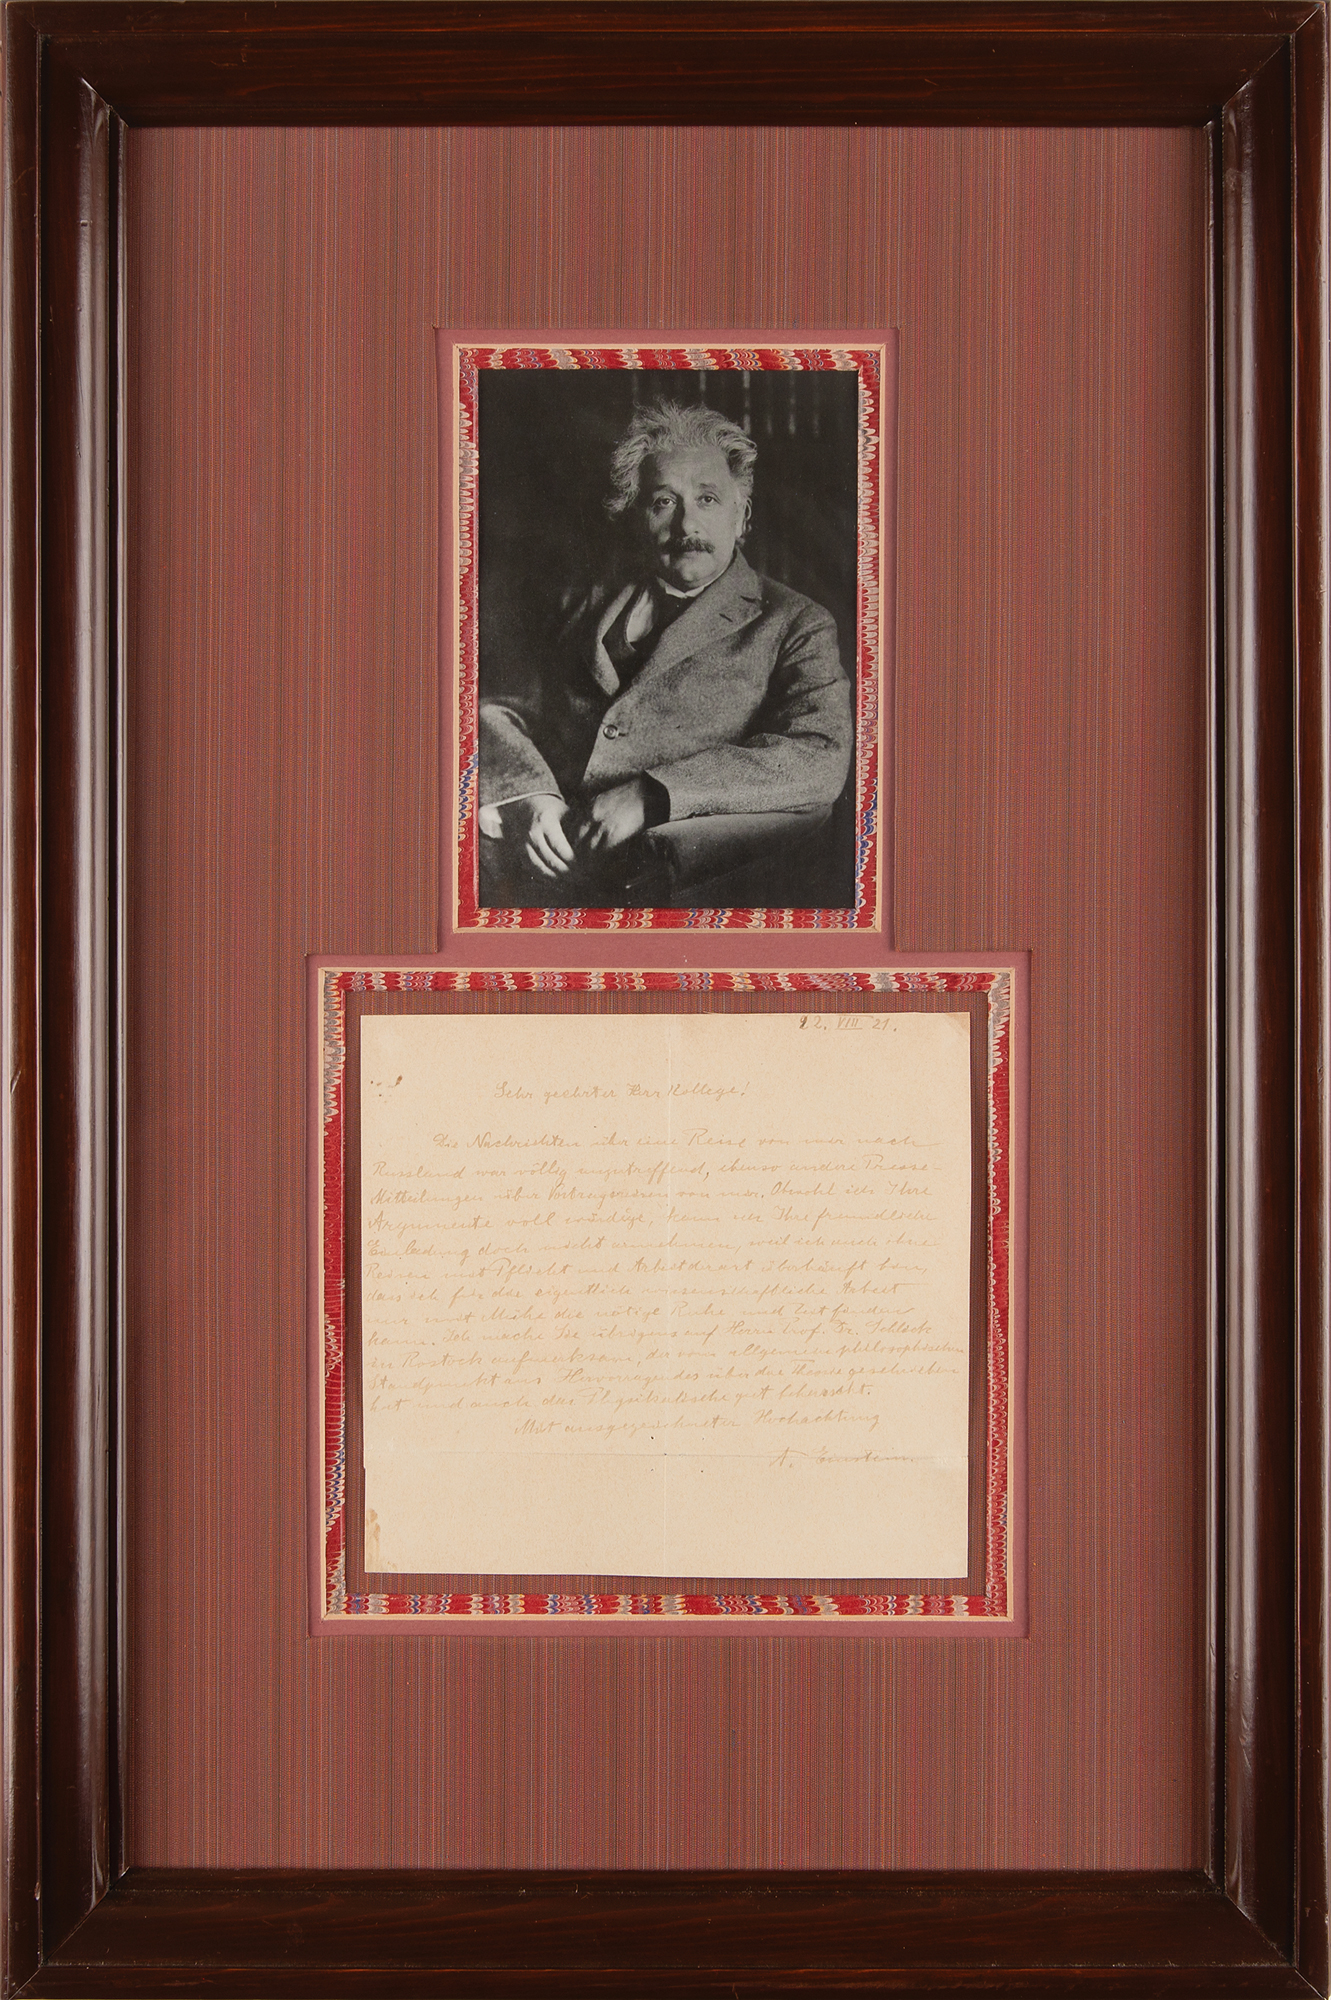 22. VIII 21.
Sehr geehrter Herr Kollege!
Die Nachrichten über eine Reise von mir nach
Russland war völlig unzutreffend, ebenso andere Presse-
Mitteilungen über Vortragsreisen von mir. Obwohl ich Ihre
Argumente voll würdige, kann ich Ihre freundliche
Einladung doch nicht annehmen, weil ich auch ohne
Reisen mit Pflicht und Arbeit derart überhäuft bin,
dass ich für die eigentliche wissenschaftliche Arbeit
nur mit Mühe die nötige Ruhe und Zeit finden
kann. Ich mache Sie übrigens auf Herrn Prof. Dr. Schlick
in Rostock aufmerksam, der vom allgemein philosophischen
Standpunkt aus Hervorragendes über die Theorie geschrieben
hat und auch das Physikalische gut beherrscht.
Mit ausgezeichneter Hochachtung
A. Einstein.